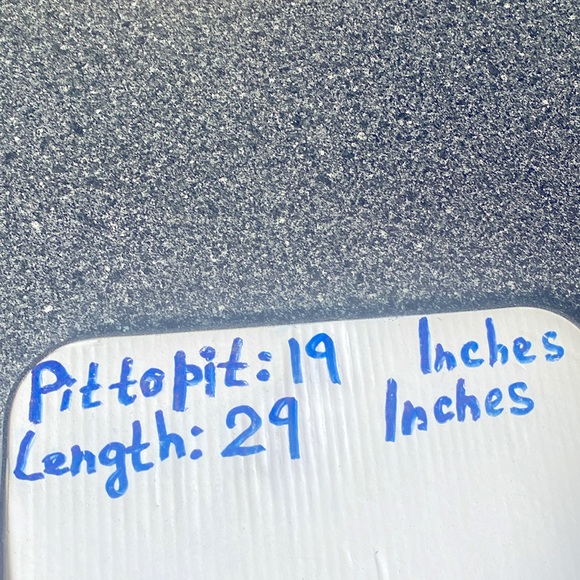 Pit to pit: 19 Inches
Length: 29 Inches